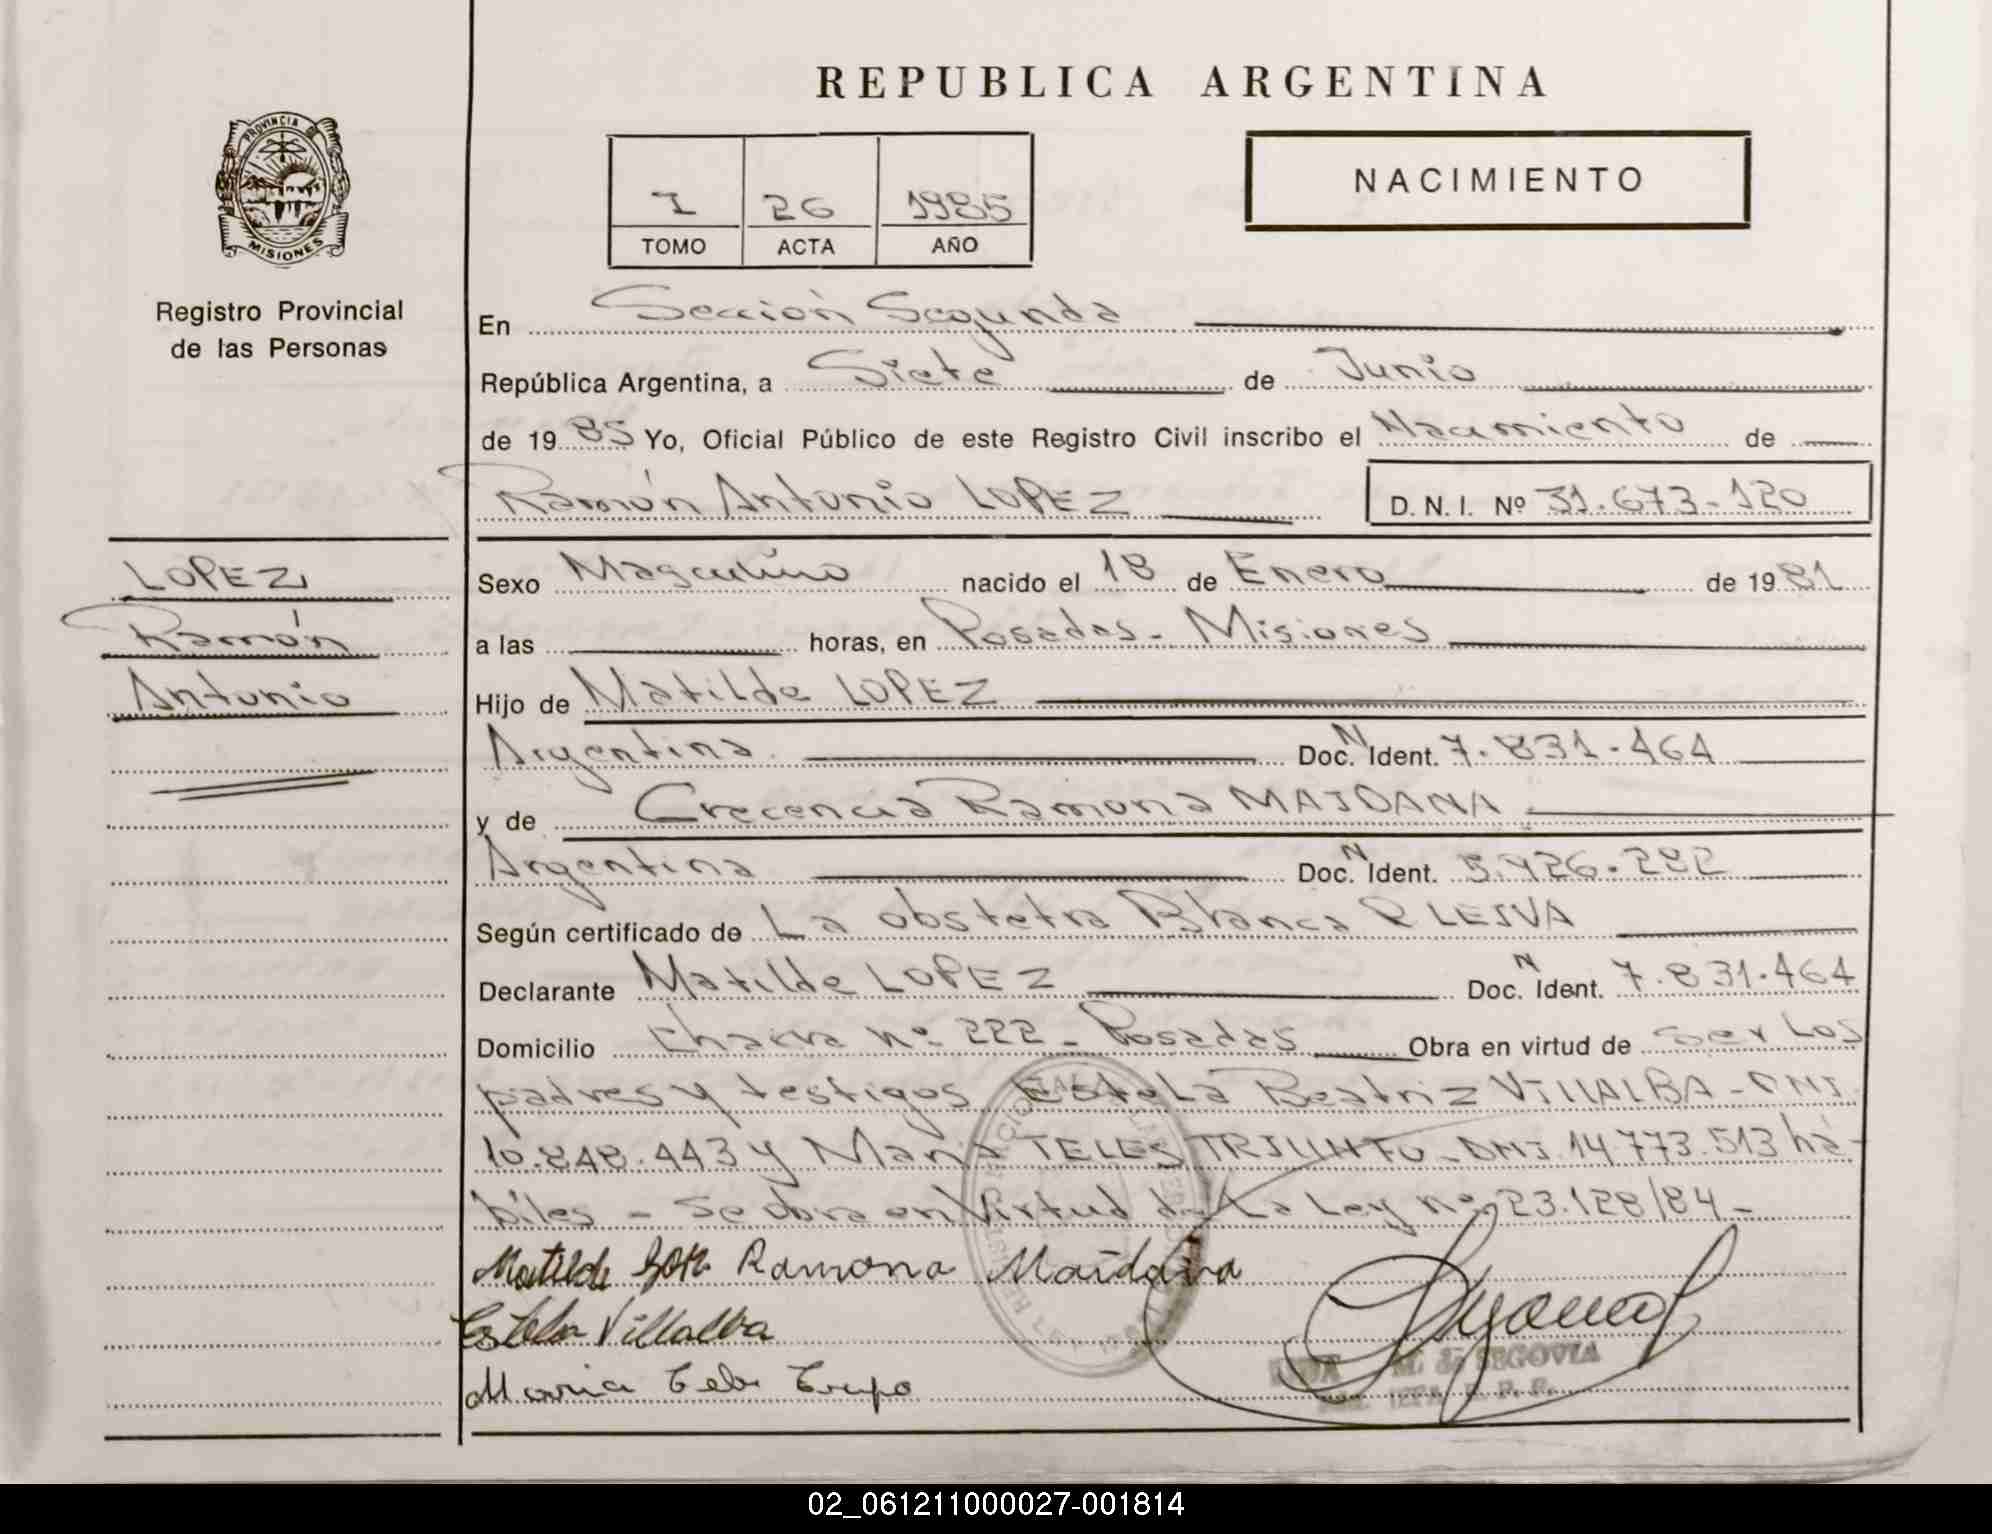 REPUBLICA ARGENTINA
PROVINCIA DE
MISIONES
Registro Provincial
de las Personas
I 26 1985
TOMO ACTA AÑO
NACIMIENTO
En Sección Segunda
República Argentina, a Siete de Junio
de 19 85 Yo, Oficial Público de este Registro Civil inscribo el Nacimiento de
Ramón Antonio LOPEZ D. N. I. Nº 31.673-120
LOPEZ
Ramón
Antonio
Sexo Masculino nacido el 18 de Enero de 19 81
a las horas, en Posadas - Misiones
Hijo de Matilde LOPEZ
Argentina Doc. N Ident. 7.831.464
y de Crecencia Ramona MAIDANA
Argentina Doc. N Ident. 5.426.282
Según certificado de La obstetra Blanca R LEIVA
Declarante Matilde LOPEZ Doc. N Ident. 7.831.464
Domicilio chacra nº 222 - Posadas Obra en virtud de ser Los
padres y testigos Estela Beatriz VILLALBA - DNI.
10.848.443 y Maria TELES TRIUNFO - DNI. 14.773.513 há-
biles - Se obra en Virtud de La Ley nº 23.128/84 -
Matilde Ramona Maidana
Estela Villalba
Maria
M. de SEGOVIA
02_061211000027-001814